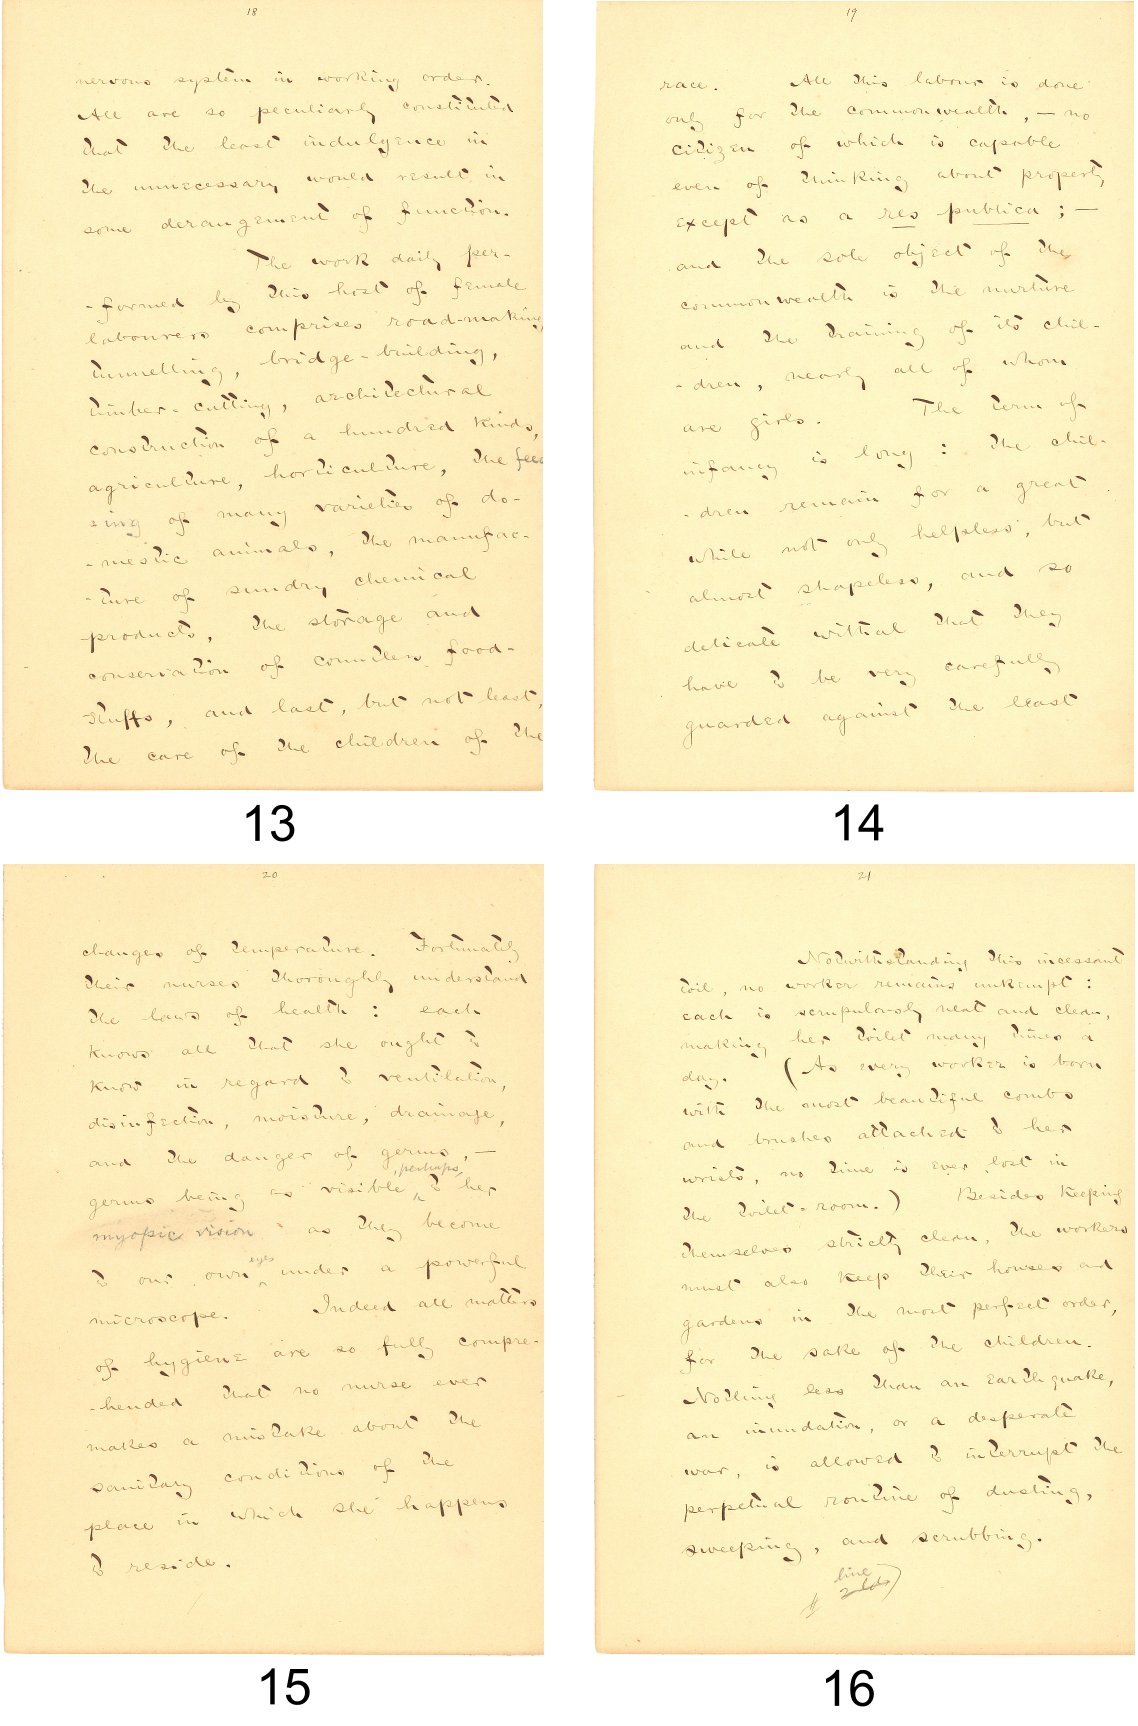 18
nervous system in working order.
All are so peculiarly constituted
that the least indulgence in
the unnecessary would result in
some derangement of function.
The work daily per-
-formed by this host of female
labourers comprises road-making,
tunnelling, bridge-building,
timber-cutting, architectural
construction of a hundred kinds,
agriculture, horticulture, the feed
-ing of many varieties of do-
-mestic animals, the manufac-
-ture of sundry chemical
products, the storage and
conservation of countless food-
stuffs, and last, but not least,
the care of the children of the
13
19
race. All this labour is done
only for the commonwealth, — no
citizen of which is capable
even of thinking about property,
except as a res publica; —
and the sole object of the
commonwealth is the nurture
and the training of its chil-
-dren, nearly all of whom
are girls. The term of
infancy is long: the chil-
-dren remain for a great
while not only helpless, but
almost shapeless, and so
delicate withal that they
have to be very carefully
guarded against the least
14
20
changes of temperature. Fortunately
their nurses thoroughly understand
the laws of health: each
knows all that she ought to
know in regard to ventilation,
disinfection, moisture, drainage,
and the danger of germs, —
germs being as visible, perhaps, to her
myopic vision as they become
to our own eyes under a powerful
microscope. Indeed all matters
of hygiene are so fully compre-
-hended that no nurse ever
makes a mistake about the
sanitary conditions of the
place in which she happens
to reside.
15
21
Notwithstanding this incessant
toil, no worker remains unkempt:
each is scrupulously neat and clean,
making her toilet many times a
day. (As every worker is born
with the most beautiful combs
and brushes attached to her
wrists, no time is ever lost in
the toilet-room.) Besides keeping
themselves strictly clean, the workers
must also keep their houses and
gardens in the most perfect order,
for the sake of the children.
Nothing less than an earthquake,
an inundation, or a desperate
war, is allowed to interrupt the
perpetual routine of dusting,
sweeping, and scrubbing.
line
16